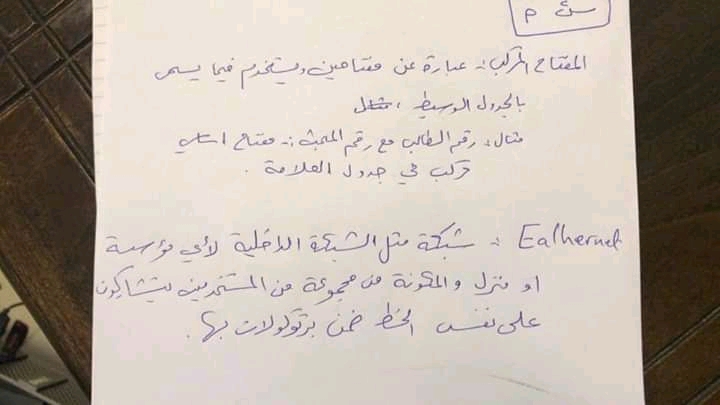 س٤ م
المفتاح المركب :- عبارة عن مفتاحين ويستخدم فيما يسمى
بالجدول الوسيط ، مثال
مثال: رقم الطالب مع رقم المبحث :- مفتاح اساسي
مركب في جدول العلامة .
Ealhernet :- شبكة مثل الشبكة الداخلية لأي مؤسسة
او منزل والمكونة من مجموعة من المستخدمين يتشاركون
على نفس الخط ضمن برتوكولات بها .